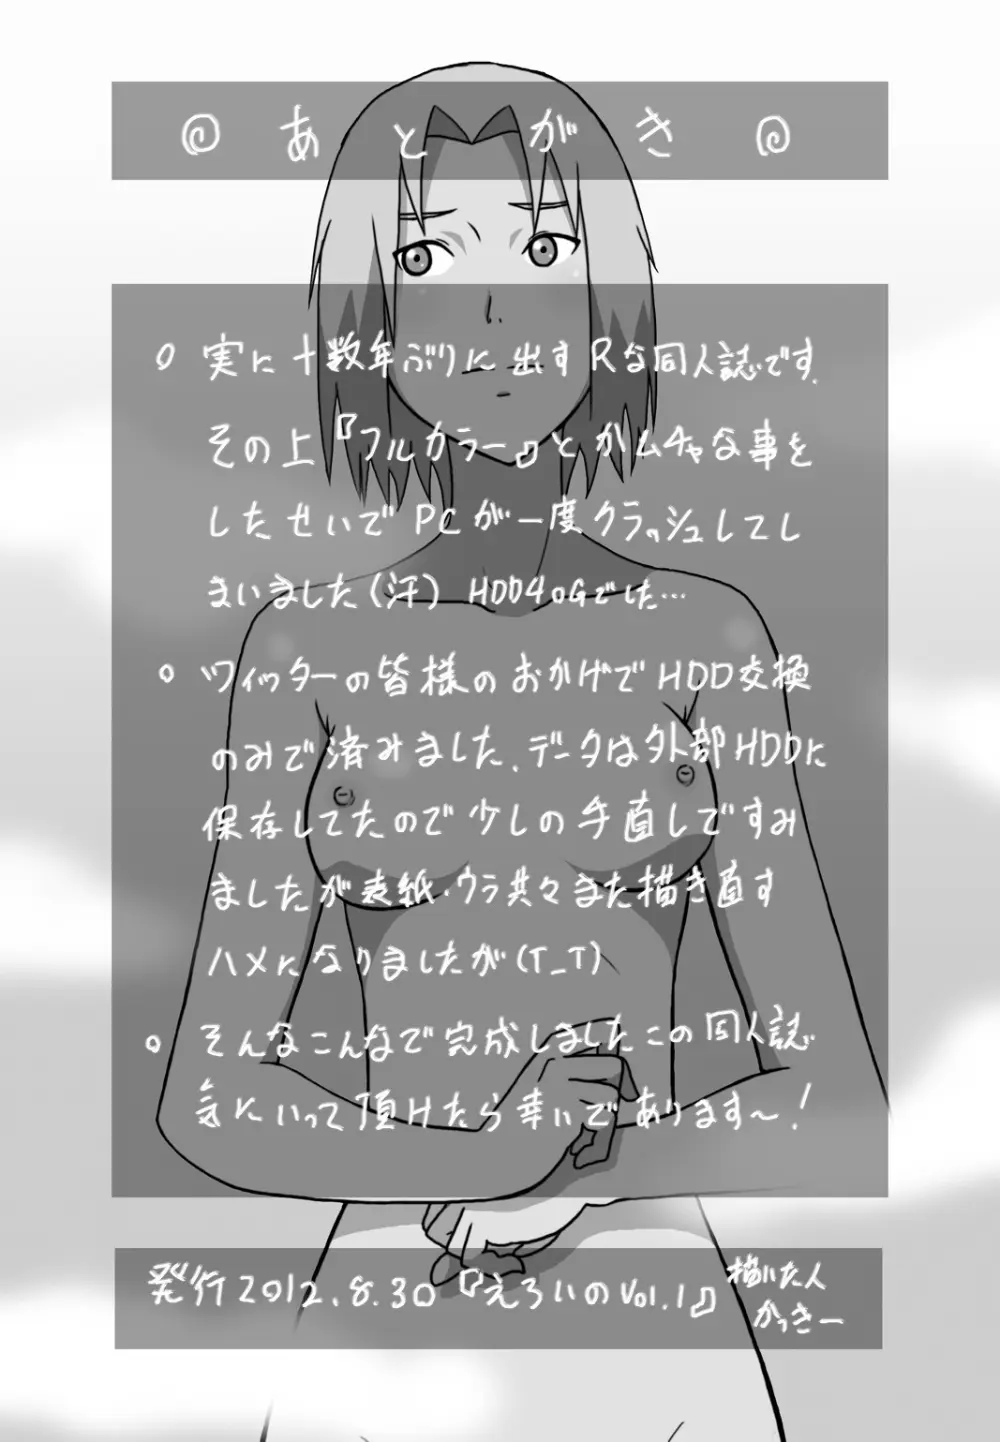 ◎ あとがき ◎
○ 実に十数年ぶりに出すRな同人誌です.
その上『フルカラー』とかムチャな事を
したせいでPCが一度クラッシュしてし
まいました(汗) HDD40Gでした…
○ ツイッターの皆様のおかげでHDD交換
のみで済みました、データは外部HDDに
保存してたので少しの手直しですみ
ましたが表紙・ウラ共々また描き直す
ハメになりましたが(T_T)
○ そんなこんなで完成しましたこの同人誌
気にいって頂けたら幸いであります〜!
発行2012.8.30『えろいのVol.1』
描いた人
かっきー